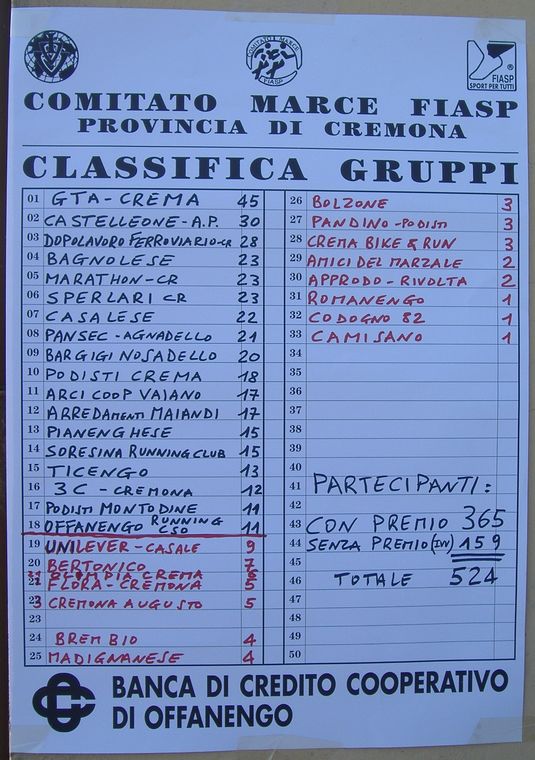 COMITATO MARCE
FIASP
FIASP
SPORT PER TUTTI
COMITATO MARCE FIASP
PROVINCIA DI CREMONA
CLASSIFICA GRUPPI
01 GTA-CREMA 45
02 CASTELLEONE-A.P. 30
03 DOPOLAVORO FERROVIARIO-CR 28
04 BAGNOLESE 23
05 MARATHON-CR 23
06 SPERLARI CR 23
07 CASALESE 22
08 PANSEC-AGNADELLO 21
09 BARGIGI NOSADELLO 20
10 PODISTI CREMA 18
11 ARCI COOP VAIANO 17
12 ARREDAMENTI MAIANDI 17
13 PIANENGHESE 15
14 SORESINA RUNNING CLUB 15
15 TICENGO 13
16 3C-CREMONA 12
17 PODISTI MONTODINE 11
18 OFFANENGO RUNNING CSO 11
19 UNILEVER-CASALE 9
20 BERTONICO 7
21 OLIMPIA CREMA 6
22 FLORA-CREMONA 5
23 CREMONA AUGUSTO 5
24 BREMBIO 4
25 MADIGNANESE 4
26 BOLZONE 3
27 PANDINO-PODISTI 3
28 CREMA BIKE & RUN 3
29 AMICI DEL MARZALE 2
30 APPRODO-RIVOLTA 2
31 ROMANENGO 1
32 CODOGNO 82 1
33 CAMISANO 1
34
35
36
37
38
39
40
41 PARTECIPANTI:
42
43 CON PREMIO 365
44 SENZA PREMIO (IVV) 159
45
46 TOTALE 524
47
48
49
50
BANCA DI CREDITO COOPERATIVO
DI OFFANENGO